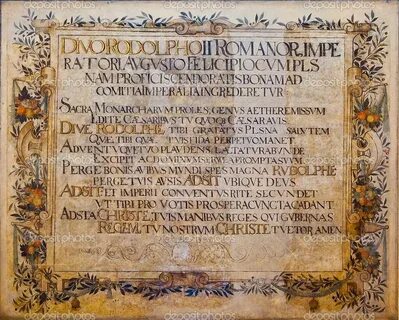 DIVO RODOLPHO II ROMANOR. IMPE
RATORI AVGVSTO FELICI PIO CVM PLS
NAM PROFICISCENDO RATISBONAM AD
COMITIA IMPERALIA INGREDERETVR
SACRA MONARCHARVM PROLES, GENVS AETHERE MISSVM
EDITE CAESARIBVS TV QVOQ CAESAR AVIS.
DIVE RODOLPHE TIBI GRATATVR PLSNA SALVTEM
QVE TIBI QVA TVIS FIDA PERPETVO MANET
ADVENTV QVE TVO PLAVDENS LAETATVR ABVNDE
EXCIPIT AC DOMINVM PROMPTA SVVM.
PERGE BONIS AVIBVS MVNDI SPES MAGNA RVDOLPHE
PERGE TVIS AVSIS ADSIT VBIQVE DEVS
ADSIT ET IMPERII CONVENTVS RITE SECVNDET
VT TIBI PRO VOTIS PROSPERA CVNCTA CADANT
ADSTA CHRISTE, TVIS MANIBVS REGES QVI GVBERNAS
REGEM, TV NOSTRVM CHRISTE TVETOR AMEN
depositphotos